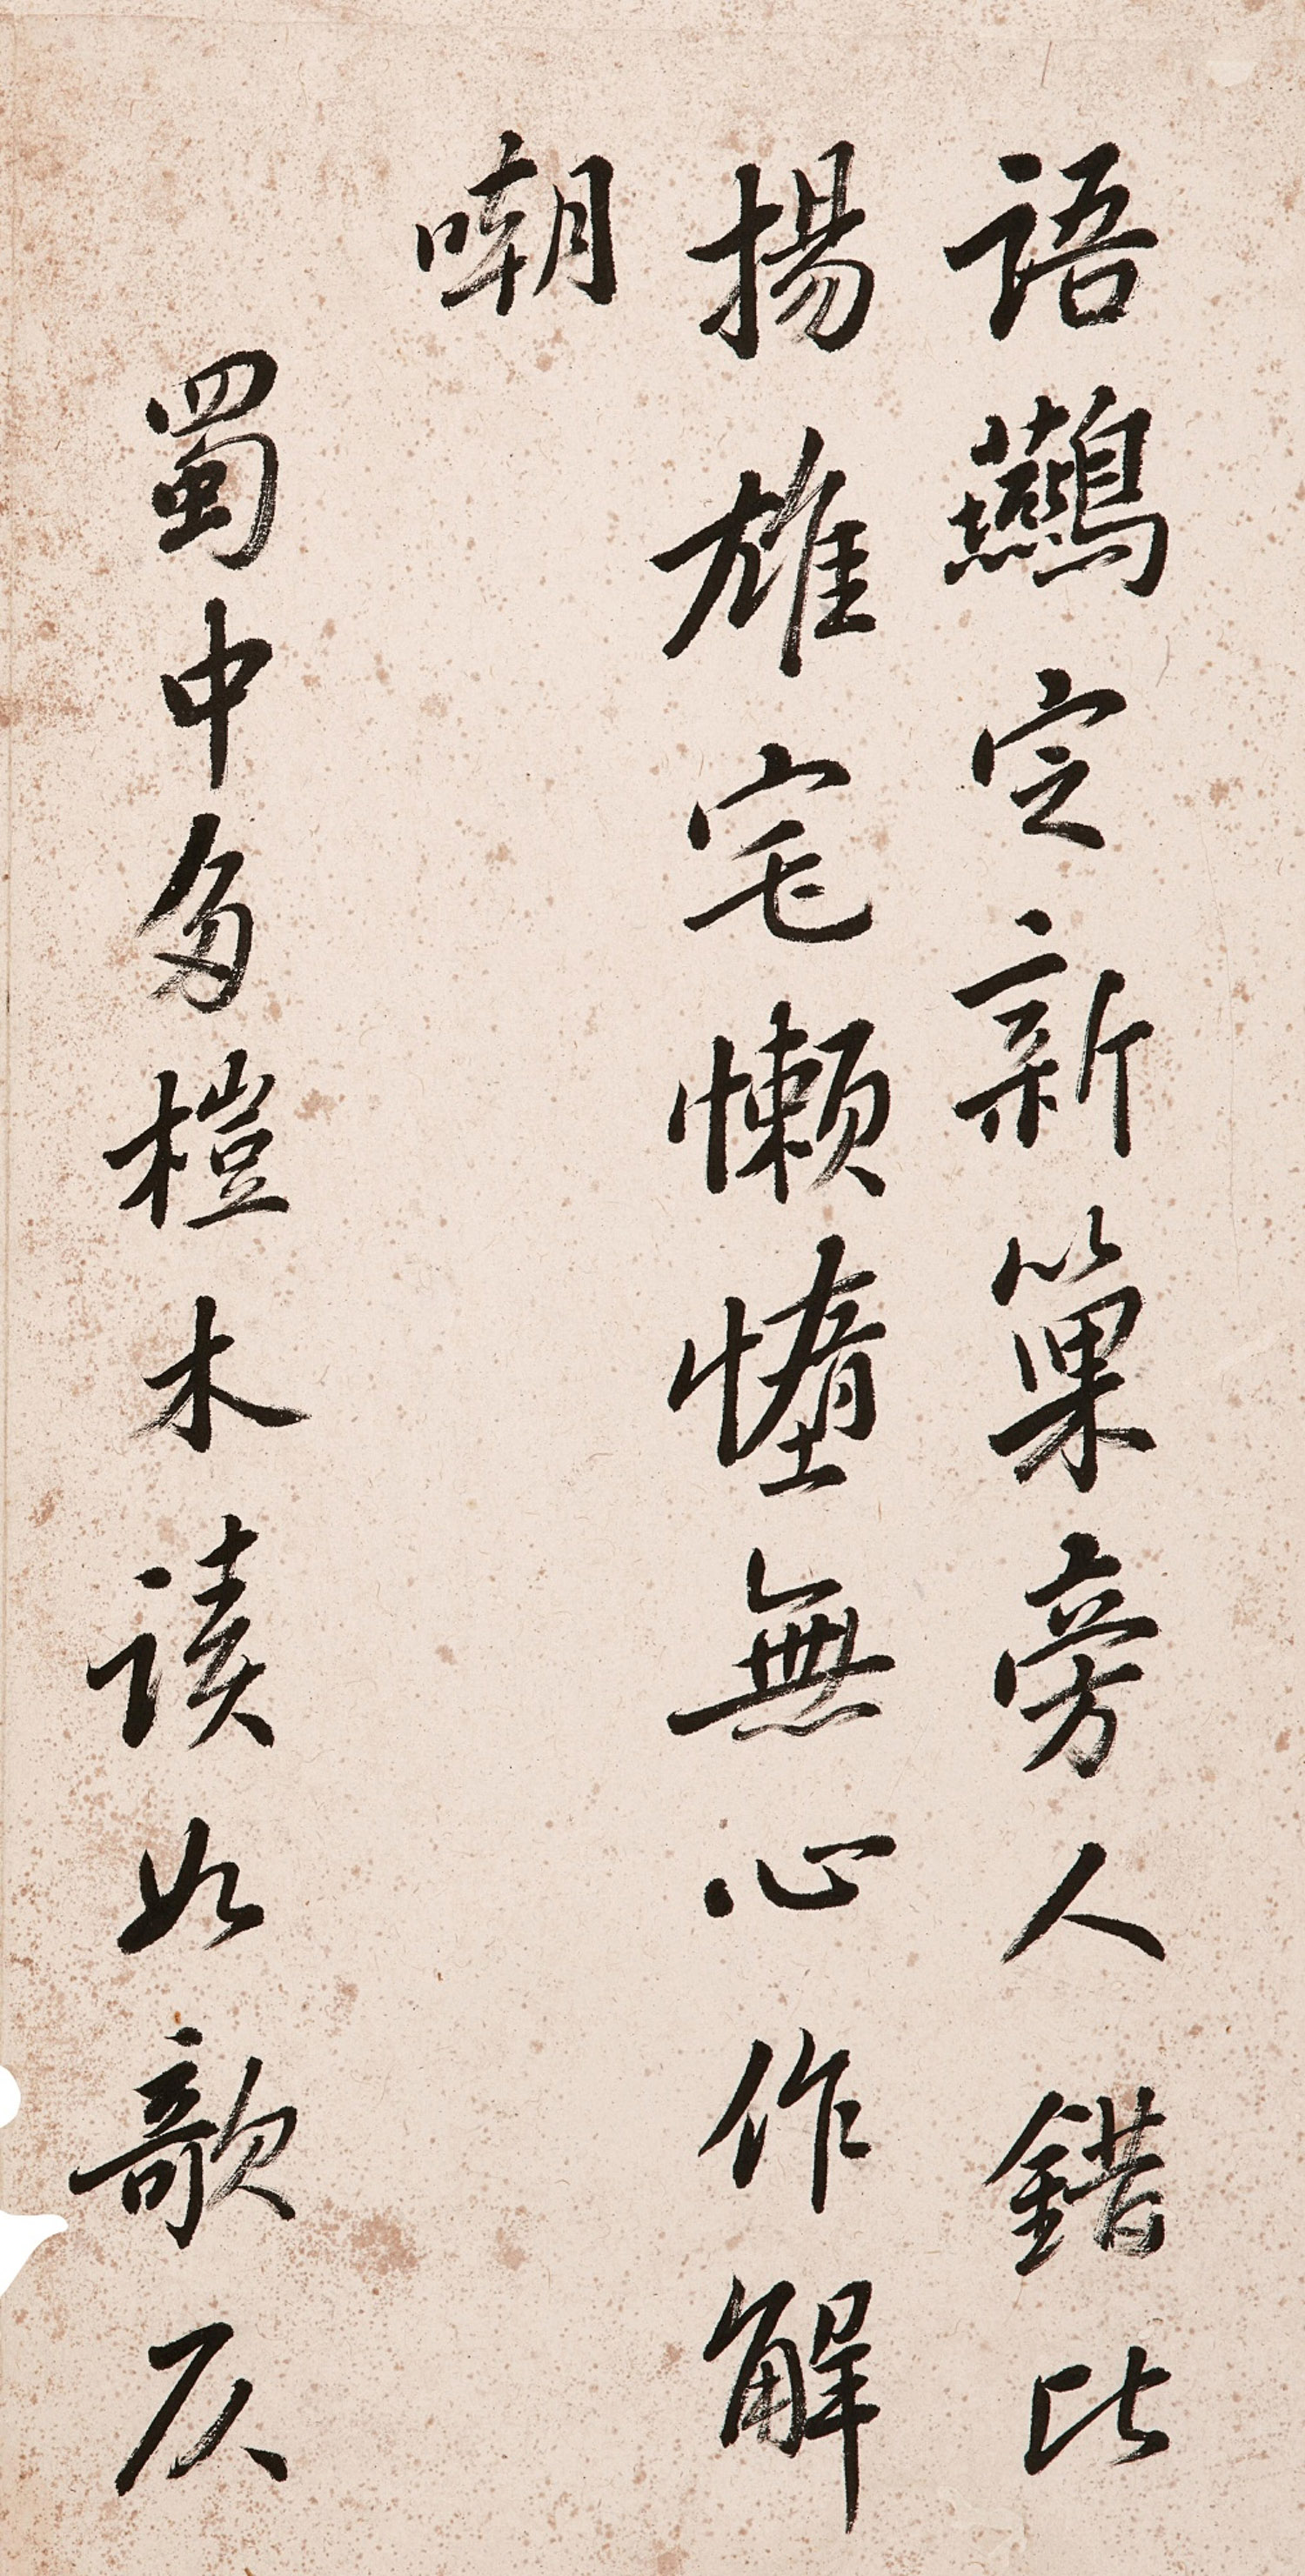 語鷰定新巢旁人錯比
揚雄宅懶惰無心作解
嘲
蜀中多榿木讀如欹仄